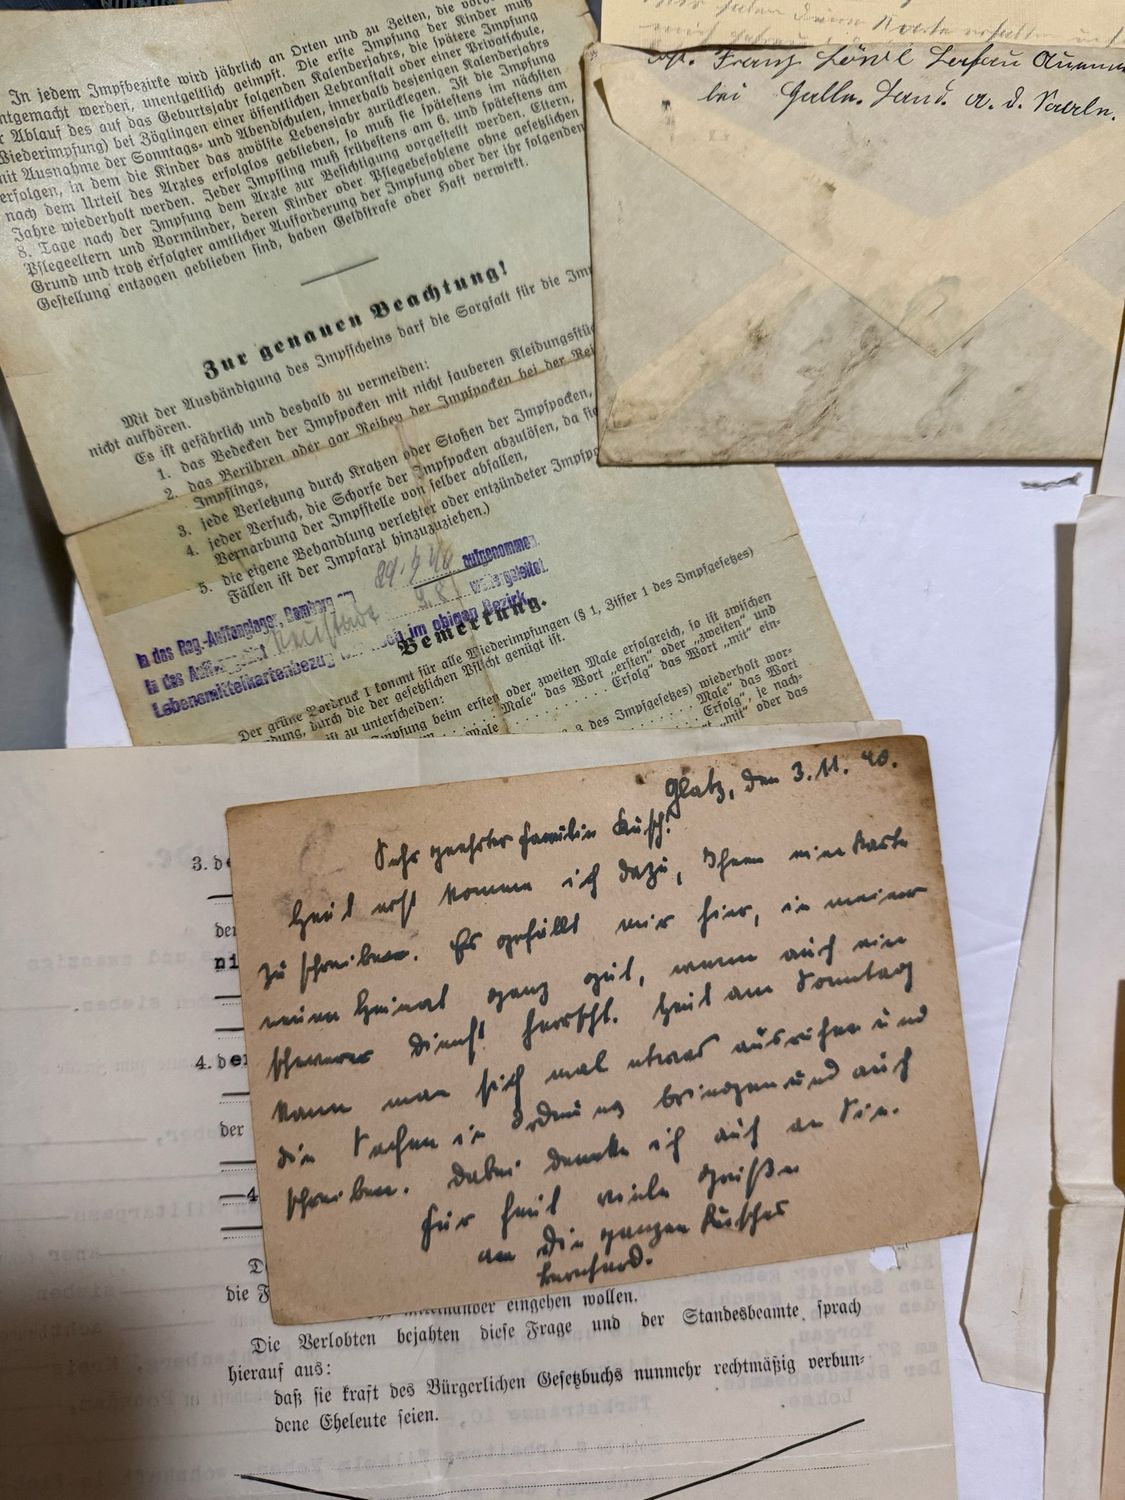 In jedem Impfbezirke wird jährlich an Orten und zu Zeiten, die vorher
ntgemacht werden, unentgeltlich geimpft. Die erste Impfung der Kinder muß
r Ablauf des auf das Geburtsjahr folgenden Kalenderjahrs, die spätere Impfung
Wiederimpfung) bei Zöglingen einer öffentlichen Lehranstalt oder einer Privatschule,
mit Ausnahme der Sonntags- und Abendschulen, innerhalb desjenigen Kalenderjahrs
erfolgen, in dem die Kinder das zwölfte Lebensjahr zurücklegen. Ist die Impfung
nach dem Urteil des Arztes erfolglos geblieben, so muß sie spätestens im nächsten
Jahre wiederholt werden. Jeder Impfling muß frühestens am 6. und spätestens am
8. Tage nach der Impfung dem Arzte zur Besichtigung vorgestellt werden. Eltern,
Pflegeeltern und Vormünder, deren Kinder oder Pflegebefohlene ohne gesetzlichen
Grund und trotz erfolgter amtlicher Aufforderung der Impfung oder der ihr folgenden
Gestellung entzogen geblieben sind, haben Geldstrafe oder Haft verwirkt.
Zur genauen Beachtung!
Mit der Aushändigung des Impfscheins darf die Sorgfalt für die Im
nicht aufhören.
Es ist gefährlich und deshalb zu vermeiden:
1. das Bedecken der Impfpocken mit nicht sauberen Kleidungsstü
2. das Berühren oder gar Reiben der Impfpocken bei der Rei
Impflings,
3. jede Verletzung durch Kratzen oder Stoßen der Impfpocken,
4. jeder Versuch, die Schorfe der Impfpocken abzulösen, da si
Vernarbung der Impfstelle von selber abfallen,
5. die eigene Behandlung verletzter oder entzündeter Impfpo
Fällen ist der Impfarzt hinzuzuziehen.)
In das Reg.-Auffanglager Bamberg am 29.9.40 aufgenommen.
In das Neustadt weitergeleitet.
Lebensmittelkartenbezug im obigen Bezirk.
Bemerkung.
Der grüne Vordruck I kommt für alle Wiederimpfungen (§ 1, Ziffer 1 des Impfgesetzes)
dung, durch die der gesetzlichen Pflicht genügt ist.
ist zu unterscheiden:
Impfung beim ersten oder zweiten Male erfolgreich, so ist zwischen
Male" das Wort „ersten" oder „zweiten" und
Erfolg" das Wort „mit" ein-
3 des Impfgesetzes) wiederholt wor-
Male" das Wort
Erfolg", je nach-
rt „mit" oder das
Franz
bei a. d.
Glatz, den 3.11.40.
Sehr geehrte Familie Kusch!
Heut erst komme ich dazu, Ihnen eine Karte
zu schreiben. Es gefällt mir hier, in meiner
neuen Heimat ganz gut, wenn auch ein
schwerer Dienst herrscht. Heut am Sonntag
kann man sich mal etwas ausruhen und
die Sachen in Ordnung bringen und auch
schreiben. Dabei denke ich auch an Sie.
Für heut viele Grüße
an die ganzen Kusches
Bernhard.
3. de
der
ni
4. der
der
4
D
die F
miteinander eingehen wollen.
Die Verlobten bejahten diese Frage und der Standesbeamte sprach
hierauf aus:
daß sie kraft des Bürgerlichen Gesetzbuchs nunmehr rechtmäßig verbun-
dene Eheleute seien.